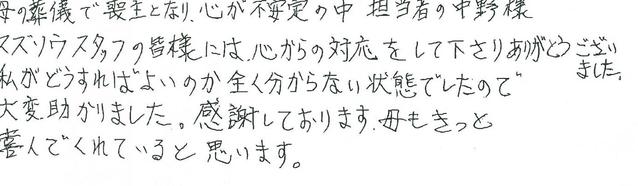 母の葬儀で喪主となり、心が不安定の中 担当者の中野様
スズソウスタッフの皆様には、心からの対応をして下さりありがとうございました。
私がどうすればよいのか全く分からない状態でしたので
大変助かりました。感謝しております。母もきっと
喜んでくれていると思います。